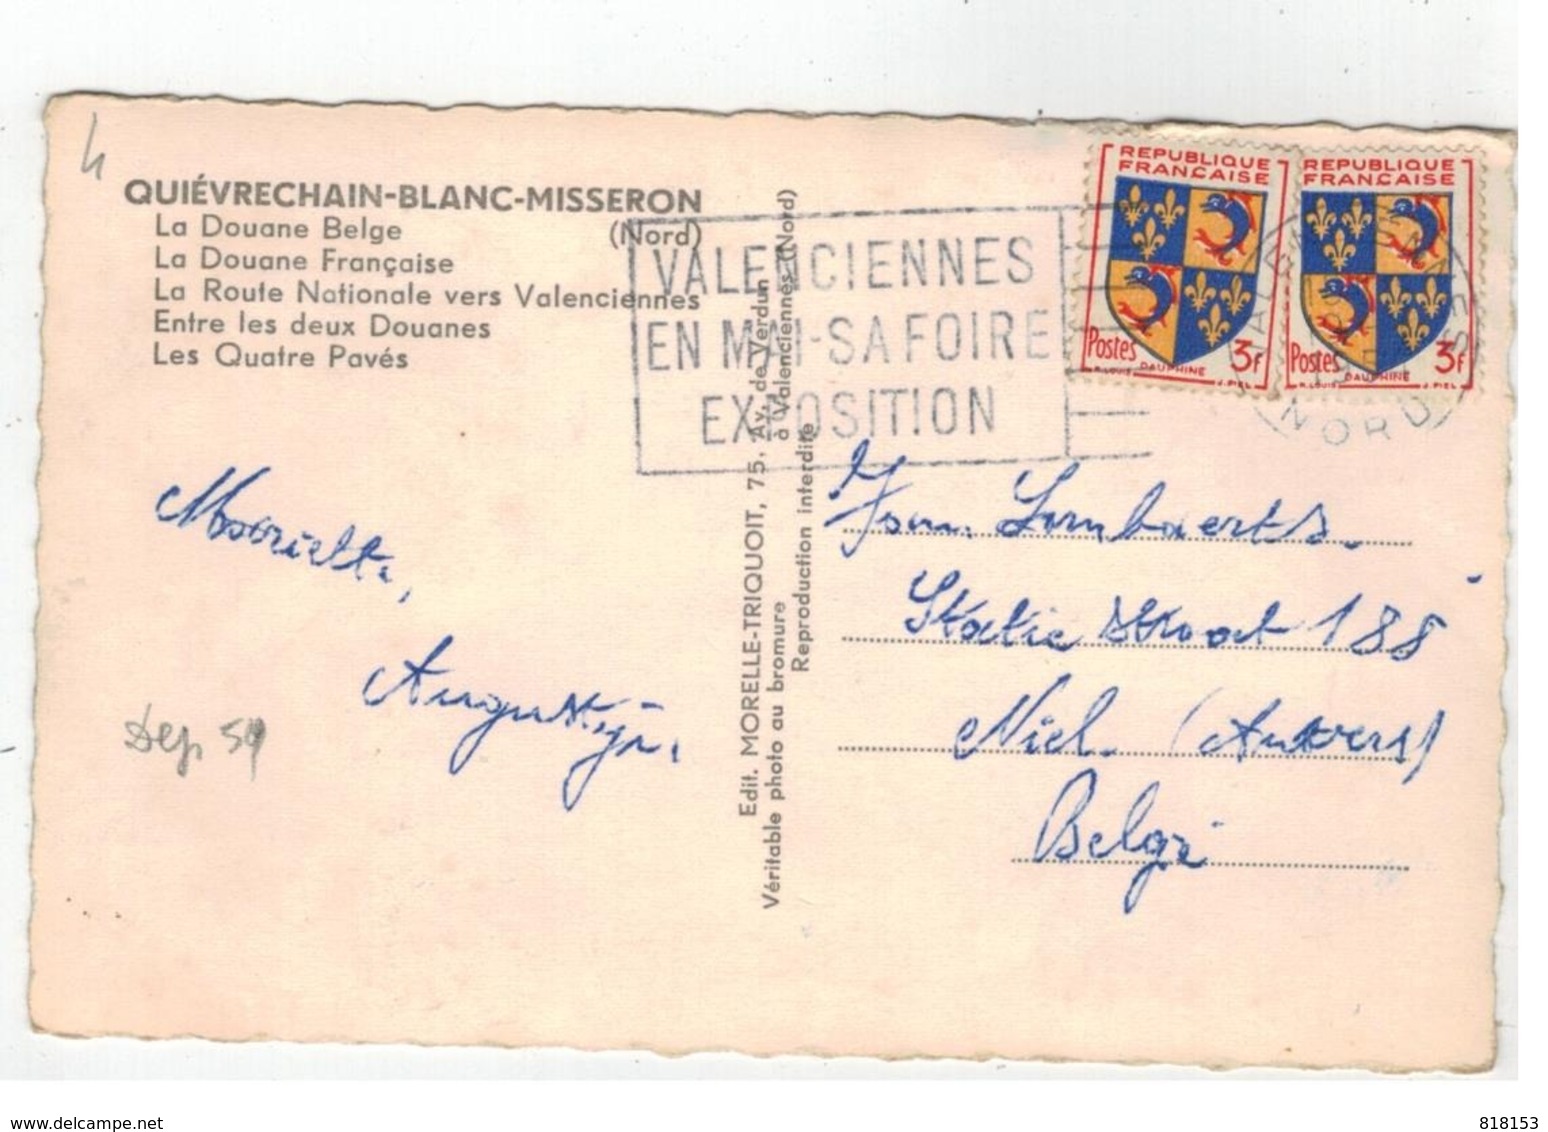 4
QUIÉVRECHAIN-BLANC-MISSERON
(Nord)
La Douane Belge
La Douane Française
La Route Nationale vers Valenciennes
Entre les deux Douanes
Les Quatre Pavés
VALENCIENNES
EN MAI-SA FOIRE
EXPOSITION
REPUBLIQUE
FRANÇAISE
Postes 3F
DAUPHINE
REPUBLIQUE
FRANÇAISE
Postes 3F
DAUPHINE
NORD
Edit. MORELLE-TRIQUOIT, 75, Av. de Verdun
à Valenciennes (Nord)
Véritable photo au bromure
Reproduction interdite
Lambaerts.
Statiestraat 188
Niel. (Antvers)
Belgi
Dep. 59
www.delcampe.net
818153